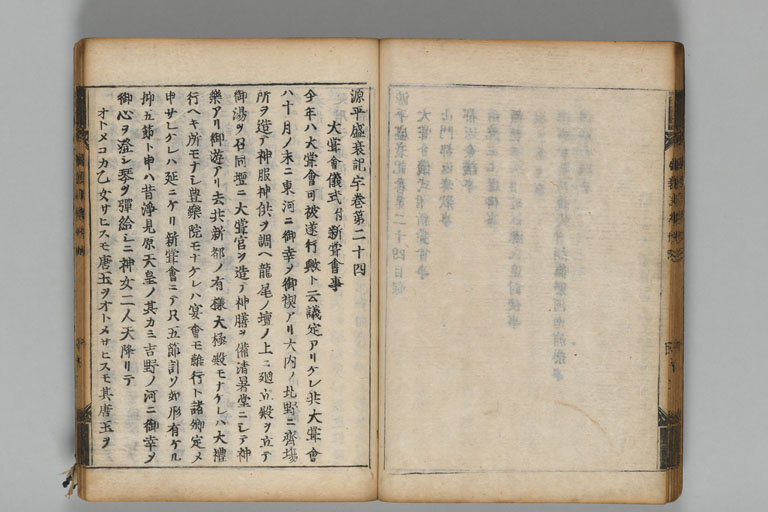 源平盛衰記字巻第二十四
大甞會儀式付新甞會事
今年ハ大甞會可被遂行歟ト云議定アリケレ共大甞會
ハ十月ノ末ニ東河ニ御幸メ御禊アリ大内ノ北野ニ齊塲
所ヲ造テ神服神供ヲ調ヘ龍尾ノ壇ノ上ニ廻立殿ヲ立テ
御湯ヲ召同壇ニ大甞宮ヲ造テ神膳ヲ備清暑堂ニシテ神
樂アリ御遊アリ去共新都ノ有樣大極殿モナケレハ大禮
行ヘキ所モナシ豊樂院モナケレハ宴會モ難行ト諸卿定メ
申サレケレハ延ニケリ新甞會ニテ只五節計ソ如形有ケル
抑五節ト申ハ昔浄見原天皇ノ其カミ吉野ノ河ニ御幸メ
御心ヲ澄シ琴ヲ彈給シニ神女二人天降リテ
オトメコカ乙女サヒスモ唐玉ヲオトメサヒスモ其唐玉ヲ